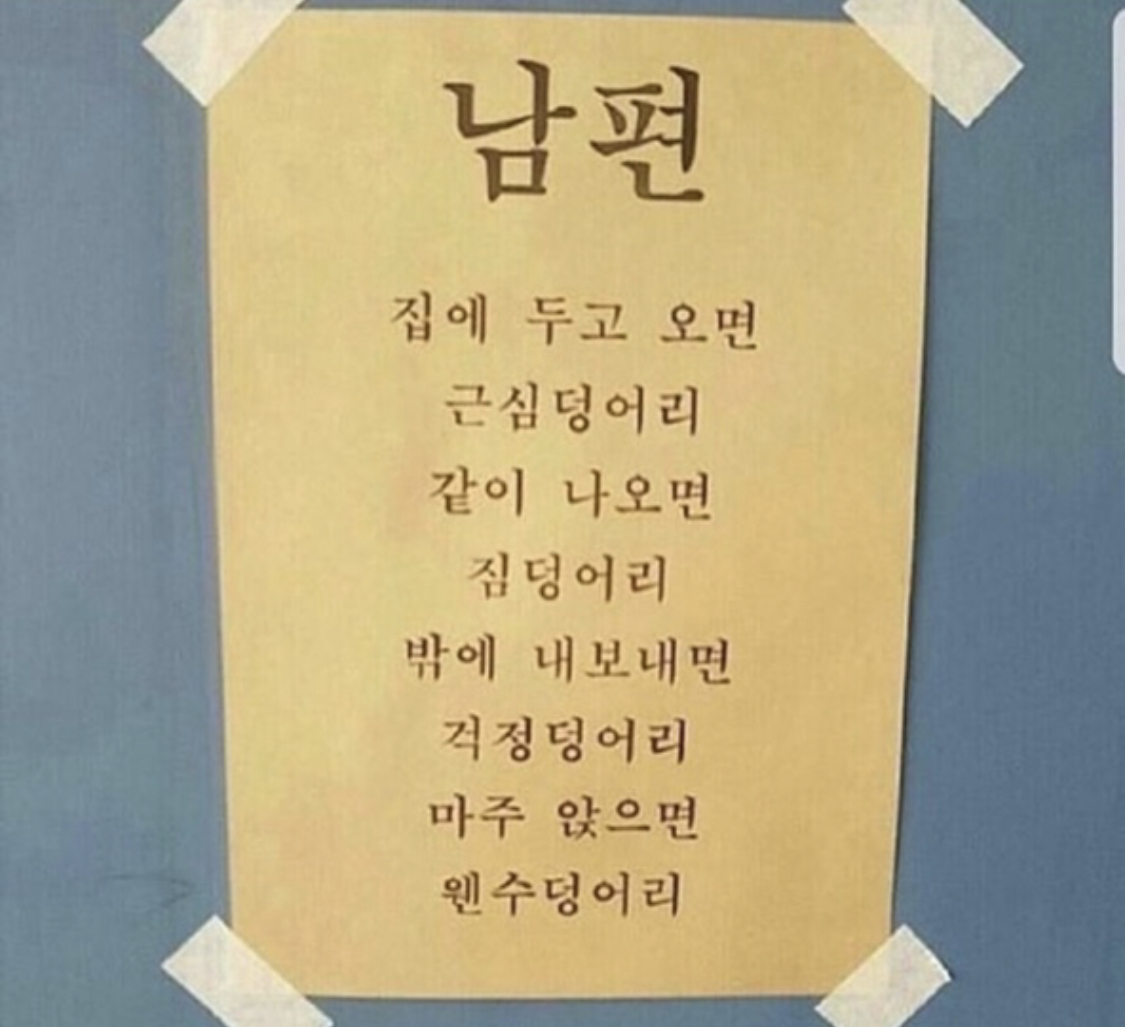 남편
집에 두고 오면
근심덩어리
같이 나오면
짐덩어리
밖에 내보내면
걱정덩어리
마주 앉으면
웬수덩어리